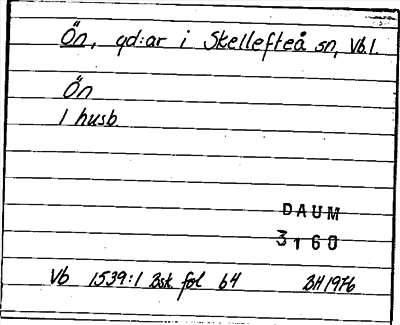 Ön, gd:ar i Skellefteå sn, Vb.l.
Ön
1 husb.
DAUM
3160
Vb 1539:1 Bsk fol 64 BH 1976